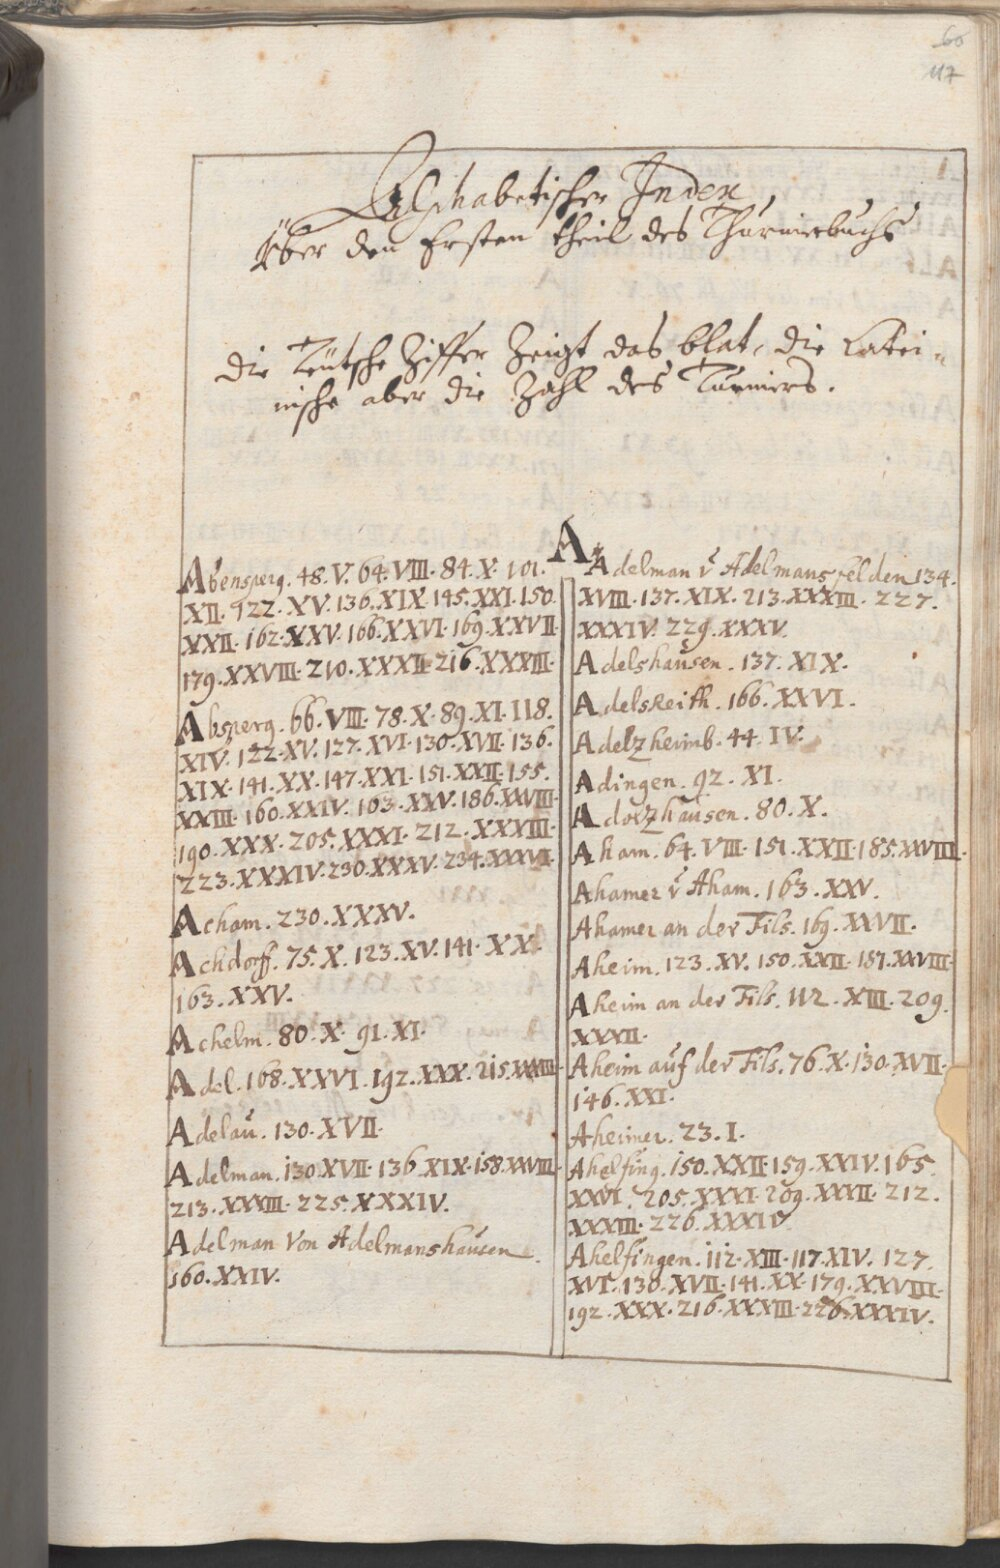 60
117
Alphabetischer Index
Über den Ersten theil des Thurnierbuchs
die Teütsche Ziffer Zeigt das blat, die Latei-
nische aber die Zahl des Turniers.
A
Abensperg. 48. V. 64. VIII. 84. X. 101.
XII. 122. XV. 136. XIX. 145. XXI. 150.
XXII. 162. XXV. 166. XXVI. 169. XXVII.
179. XXVIII. 210. XXXII. 216. XXXIII.
Absperg. 66. VIII. 78. X. 89. XI. 118.
XIV. 122. XV. 127. XVI. 130. XVII. 136.
XIX. 141. XX. 147. XXI. 151. XXII. 155.
XXIII. 160. XXIV. 163. XXV. 186. XXVIII.
190. XXX. 205. XXXI. 212. XXXIII.
223. XXXIV. 230. XXXV. 234. XXXVI.
Acham. 230. XXXV.
Achdorff. 75. X. 123. XV. 141. XX.
163. XXV.
Achelm. 80. X. 91. XI.
Adel. 168. XXVI. 192. XXX. 215. XXXIII.
Adelaŭ. 130. XVII.
Adelman. 130. XVII. 136. XIX. 158. XXVIII.
213. XXXIII. 225. XXXIV.
Adelman Von Adelmanshaŭsen.
160. XXIV.
Adelman v̆ Adelmansfelden 134.
XVIII. 137. XIX. 213. XXXIII. 227.
XXXIV. 229. XXXV.
Adelshaŭsen. 137. XIX.
Adelskeith. 166. XXVI.
Adelzheimb. 44. IV.
Adingen. 92. XI.
Adolzhaŭsen. 80. X.
Aham. 64. VIII. 151. XXII. 185. XXVIII.
Ahamer v̆ Aham. 163. XXV.
Ahamer an der Fils. 169. XXVII.
Aheim. 123. XV. 150. XXII. 187. XXVIII.
Aheim an der Fils. 112. XIII. 209.
XXXII.
Aheim aŭf der Fils. 76. X. 130. XVII.
146. XXI.
Aheimer. 23. I.
Ahelfing. 150. XXII. 159. XXIV. 165.
XXVI. 205. XXXI. 209. XXXII. 212.
XXXIII. 226. XXXIV.
Ahelfingen. 112. XIII. 117. XIV. 127.
XVI. 130. XVII. 141. XX. 179. XXVIII.
192. XXX. 216. XXXIII. 226. XXXIV.